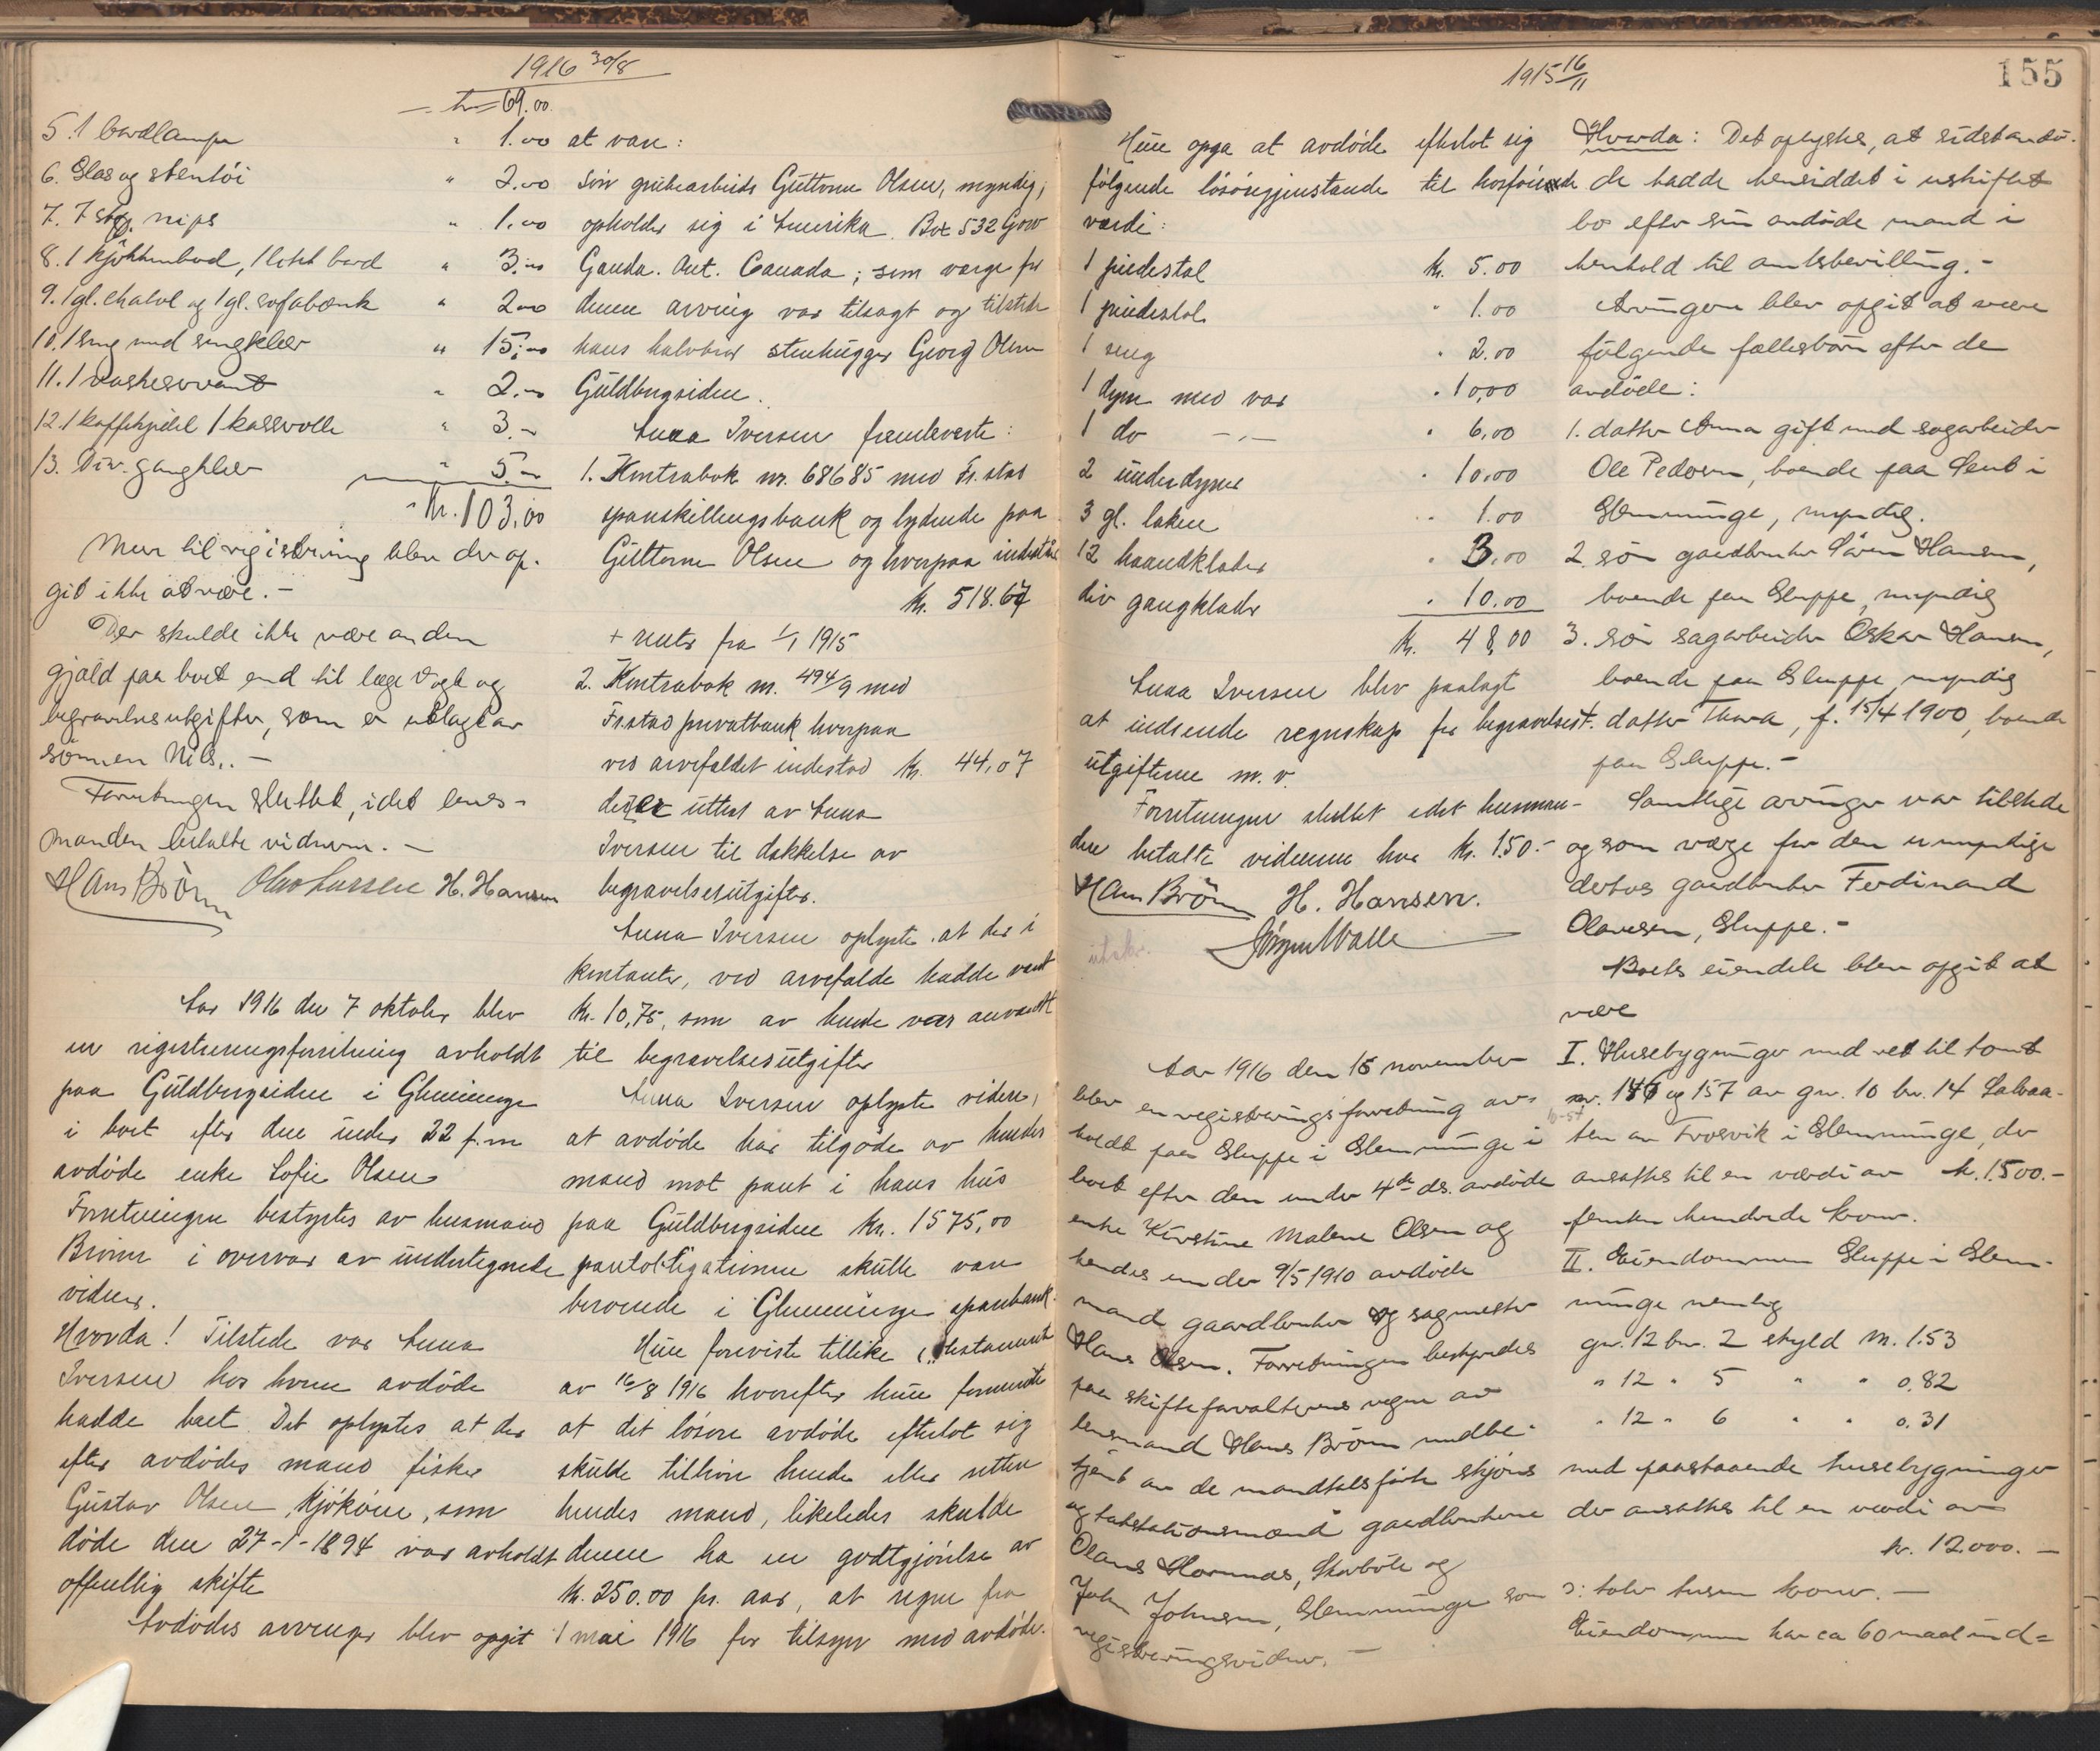 1916 30/8
kr 69.00
5. 1 bordlampe " 1.00
6. Glas og stentöi " 2.00
7. 7 stkr. nips " 1.00
8. 1 kjökkenbord, 1 litet bord " 3.00
9. 1 gl. chatol og 1 gl. sofabænk " 2.00
10. 1 seng med sengklær " 15.00
11. 1 vaskeservant " 2.00
12. 1 kaffekjedel 1 kasserolle " 3.-
13. Div. gangklær " 5.-
Kr. 103.00
Mere til registrering blev der op-
git ikke at være. -
Der skulde ikke være anden
gjæld paa boet end til læge Vogt og
begravelsesutgifter, som er utlagt av
sönnen Nils. -
Forretningen sluttet, idet lens-
manden betalte vidnerne. -
Hans Brörn Olav Larssen H. Hansen
Aar 1916 den 7 oktober blev
en registreringsforretning avholdt
paa Guldbergsiden i Glemminge
i boet efter den under 22 f.m
avdöde enke Sofie Olsen
Forretningen bestyrtes av lensmand
Brörn i overvær av undertegnede
vidner.
Hvorda! Tilstede var Anna
Iversen hos hvem avdöde
hadde boet. Det oplystes at der
efter avdödes mand fisker
Gustav Olsen, Kjököen, som
döde den 27-1-1894 var avholdt
offentlig skifte
Avdödes arvinger blev opgit
at være:
Sön grubearbeider Guttorm Olsen, myndig,
opholder sig i Amerika. Box 532 Gow
Ganda. Ont. Canada; som værge for
denne arving var tilsagt og tilstede
hans halvbror stenhugger Georg Olsen
Guldbergsiden.
Anna Iversen fremleverte:
1. Kontrabok nr. 68685 med Fr.stad
sparskillingsbank og lydende paa
Guttorm Olsen og hvorpaa indestaar
kr. 518.67
+ renter fra 1/1 1915
2. Kontrabok nr. 494/9 med
Fr.stad privatbank hvorpaa
ved arvefaldet indestod kr. 44,07
der er uttat av Anna
Iversen til dækkelse av
begravelsesutgifter.
Anna Iversen oplyste at der i
kontanter, ved arvefaldet hadde vært
kr. 10,75, som av hende var anvendt
til begravelsesutgifter
Anna Iversen oplyste videre,
at avdöde har tilgode av hendes
mand mot pant i hans hus
paa Guldbergsiden kr. 1575,00
pantobligationen skulle være
beroende i Glemminge sparebank.
Hun foreviste tillike testament
av 16/8 1916 hvorefter hun formente
at det lösöre avdöde efterlot sig
skulde tilhöre hende eller retter
hendes mand, likeledes skulde
denne ha en godtgjörelse av
kr. 250.00 pr. aar, at regne fra
1 mai 1916 for tilsyn med avdöde.
1915 16/11
155
Hun opga at avdöde efterlot sig
fölgende lösöregjenstande til hosföiende
værdi:
1 piedestal kr. 5.00
1 piedestal " 1.00
1 seng " 2.00
1 dyne med var " 10,00
1 do -"- " 6,00
2 underdyner " 10.00
3 gl. laken " 1.00
12 haandklæder " 3.00
div gangklæder " 10.00
kr. 48,00
Anna Iversen blev paalagt
at indsende regnskap for begravelses-
utgifterne m.v.
Forretningen sluttet idet lensman-
den betalte vidnerne hver kr. 1.50.-
Hans Brörn H. Hansen.
utskr. Jörgen Walle
Aar 1916 den 16 november
blev en registreringsforretning av-
holdt paa Gluppe i Glemminge i
boet efter den under 4de ds. avdöde
enke Kirstine Malene Olsen og
hendes under 9/5 1910 avdöde
mand gaardbruker og sagmester
Hans Olsen. Forretningen bestyredes
paa skifteforvalterens vegne av
lensmand Hans Brörn medbe-
tjent av de mandtalsförte skjöns
og takstationsmænd gaardbrukerne
Olaus Hornnæs, Skovböle og
John Johnsen, Glemminge som
registreringsvidner. -
Hvorda: Det oplystes, at sidstavdö-
de hadde hensiddet i uskiftet
bo efter sin avdöde mand i
henhold til amtsbevilling. -
Arvingerne blev opgit at være
fölgende fællesbörn efter de
avdöde:
1. datter Anna gift med sagarbeider
Ole Pedersen, boende paa Lunt i
Glemminge, myndig.
2. sön gaardbruker Sören Hansen,
boende paa Gluppe, myndig
3. sön sagarbeider Oskar Hansen,
boende paa Gluppe, myndig
4. datter Thora, f. 15/4 1900, boende
paa Gluppe. -
Samtlige arvinger var tilstede
og som værge for den umyndige
dertos gaardbruker Ferdinand
Olavesen, Gluppe. -
Boets eiendele blev opgit at
være
I. Husebygninger med ret til tomt
nr. 156 og 157 av gnr. 10 bnr. 14 Labraa-
ten av Trosvik i Glemminge, der
ansattes til en værdi av kr. 1500.-
femten hundrede kroner.
II. Eiendommen Gluppe i Glem-
minge nemlig
gnr. 12 bnr. 2 skyld M. 1.53
" 12 " 5 " " 0.82
" 12 " 6 " " 0.31
med paastaaende husebygninger
der ansattes til en værdi av
kr. 12000. -
ɔ: tolv tusen kroner. -
Eiendommen har ca 60 maal ind=